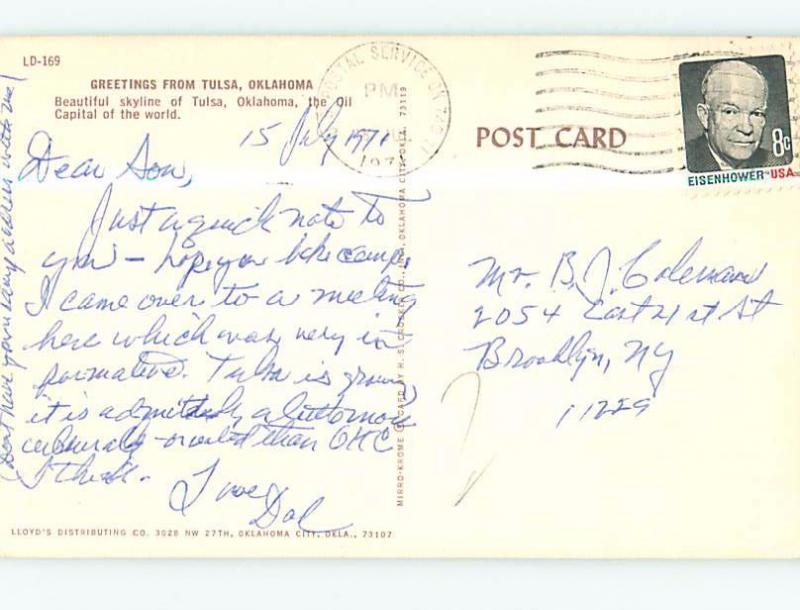 LD-169
GREETINGS FROM TULSA, OKLAHOMA
Beautiful skyline of Tulsa, Oklahoma, the Oil
Capital of the world.
15 July 1971
Dear Son,
Just a quick note to
you – hope you like camp.
I came over to a meeting
here which was very in
formative. Tulsa is
it is admittedly a bit more
culturally-oriented than OKC
I think.
Love
Dad
(Don't have your camp address with me)
LLOYD'S DISTRIBUTING CO. 3028 NW 27TH, OKLAHOMA CITY, OKLA., 73107
MIRRO-KROME CARD BY H. S. CROCKER CO., INC., OKLAHOMA CITY, OKLA. 73119
POSTAL SERVICE
PM
197
POST CARD
8c
EISENHOWER·USA
Mr. B. J. Coleman
2054 East 21st St
Brooklyn, NY
11229